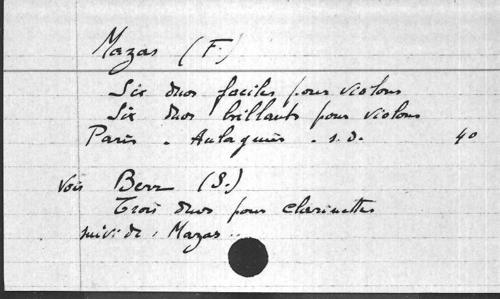 Mazas (F.)
Six duos faciles pour violons
Six duos brillants pour violons
Paris. Aulagnier. s.d. 40
voir Berr (S.)
Trois duos pour clarinettes
suivi de : Mazas..